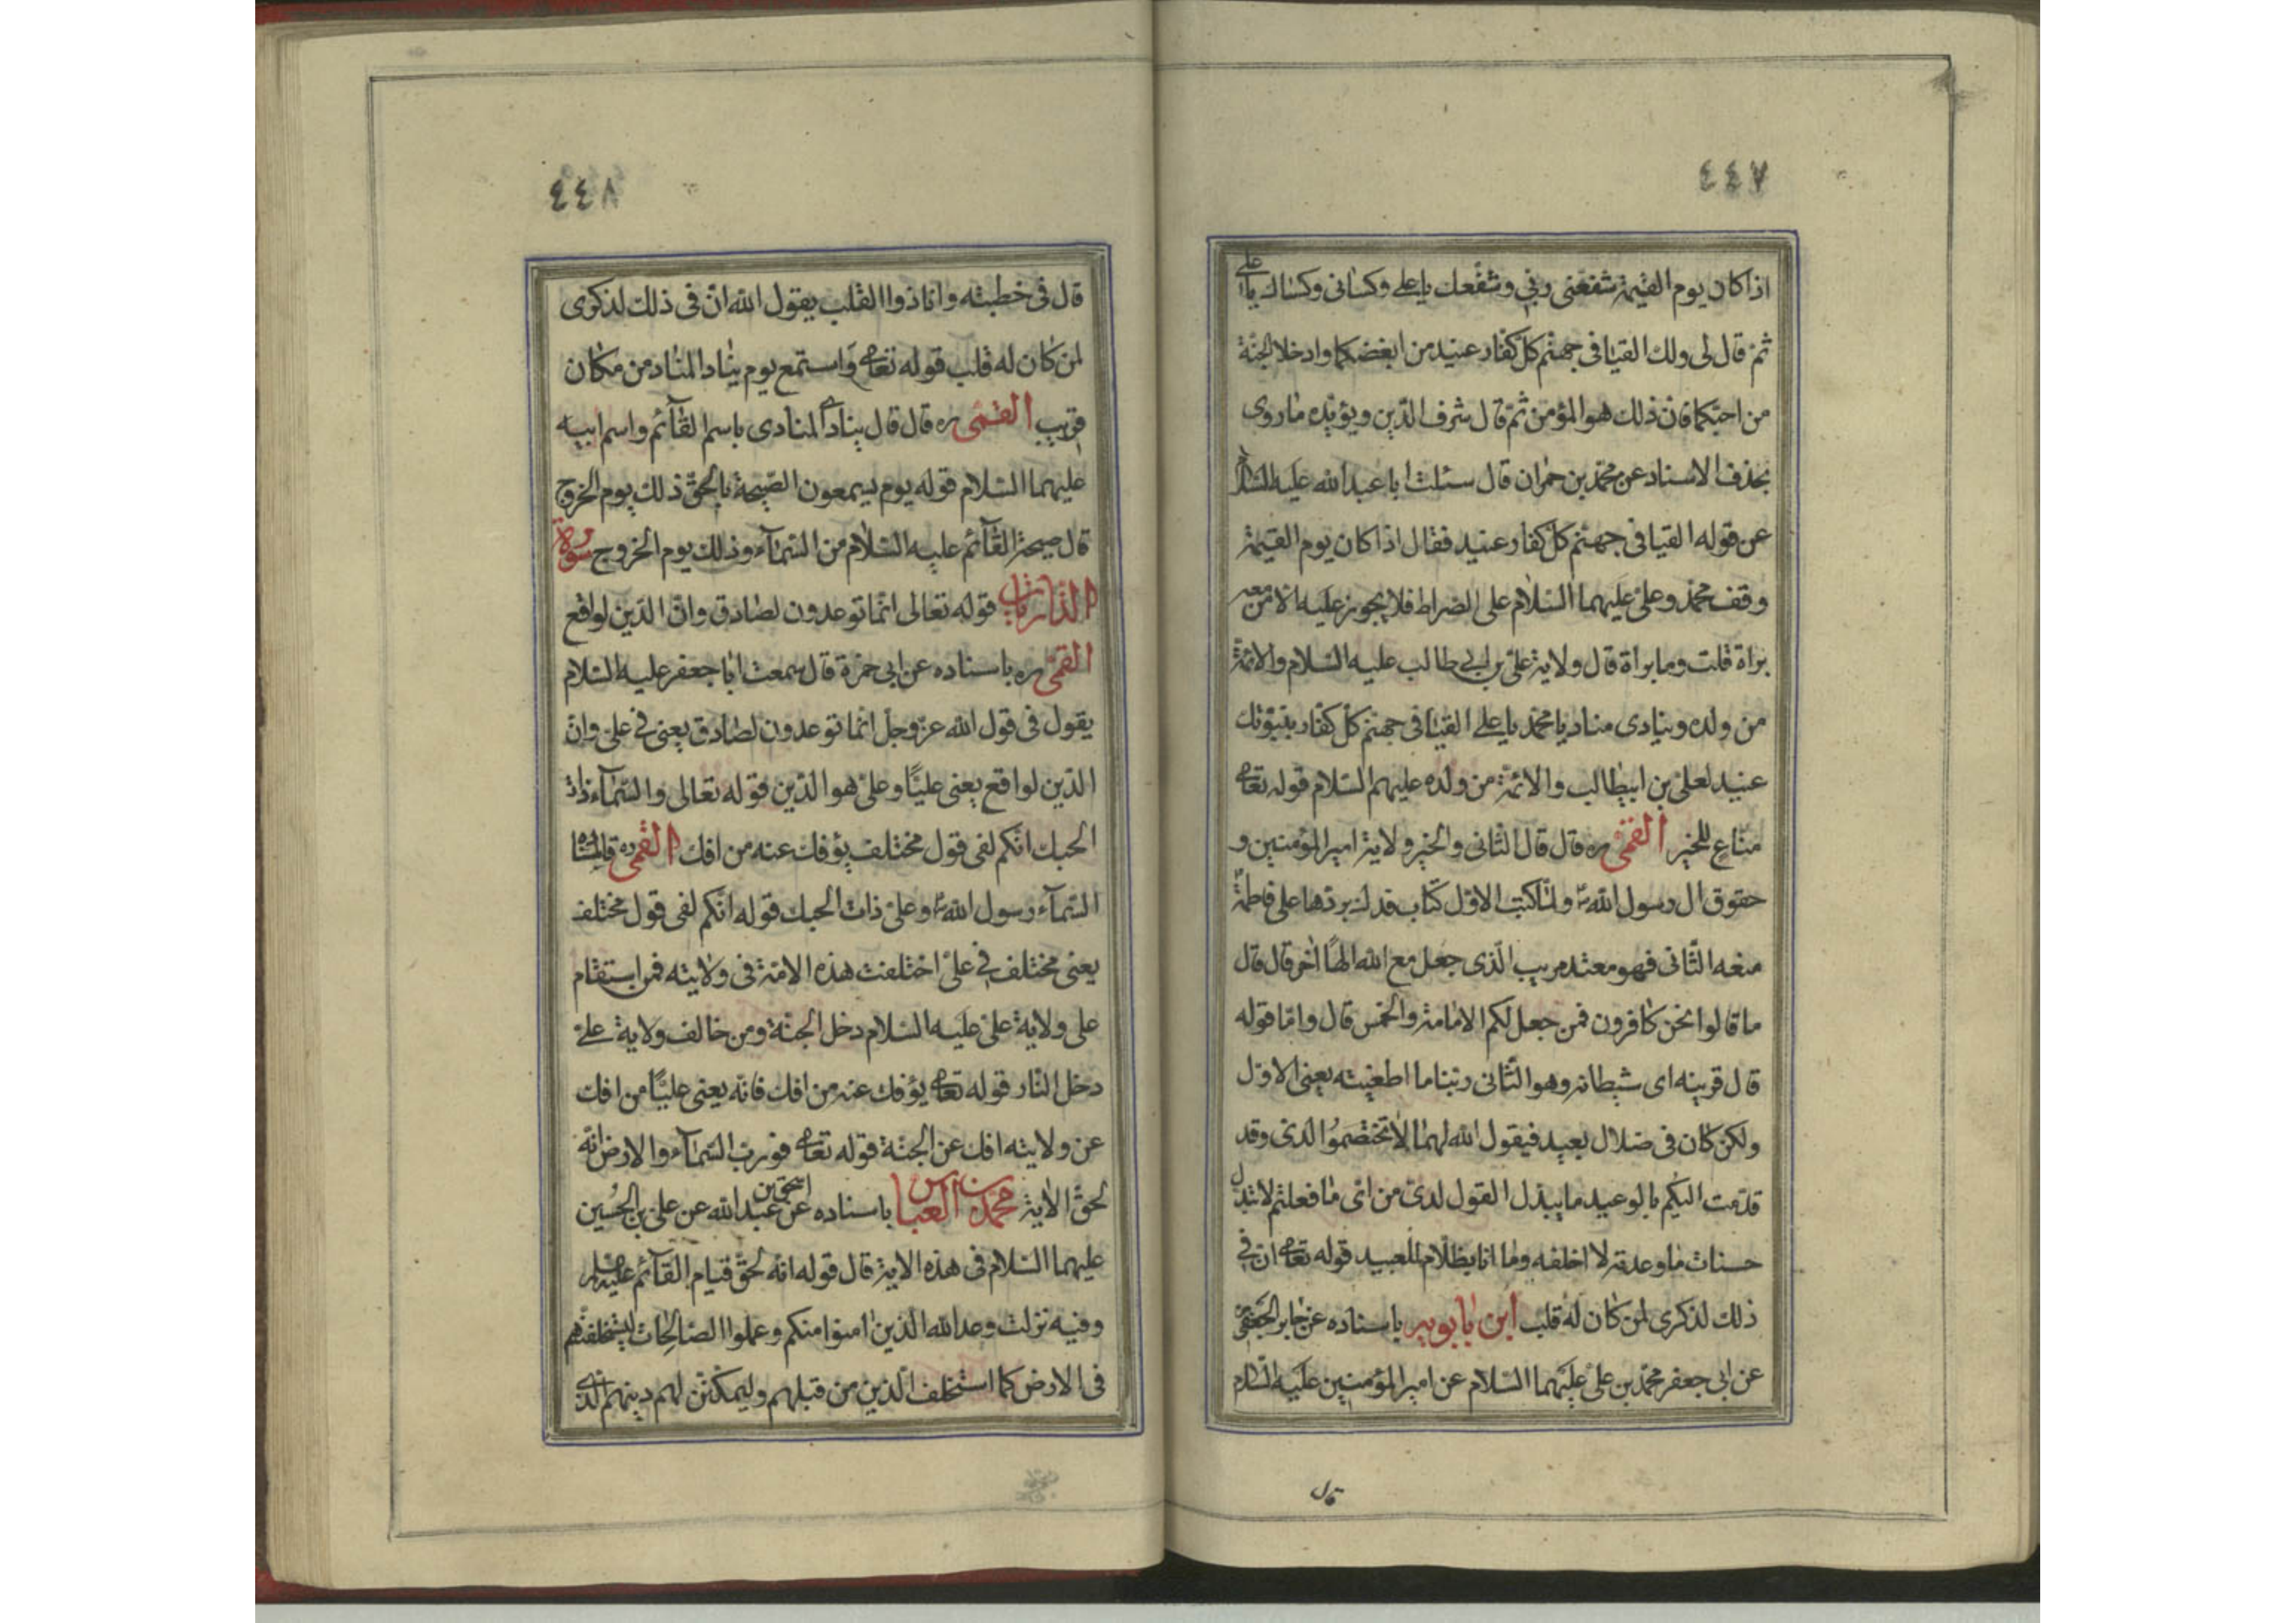 ٤٤٧
اذا كان يوم القيمة شفعنى ربى وشفعك يا على وكسانى وكساك يا على
ثم قال لى ولك القيا فى جهنم كل كفار عنيد من ابغضكما وادخلا الجنة
من احبكما فان ذلك هو المؤمن ثم قال شرف الدين ويؤيده ما روى
بحذف الاسناد عن محمد بن حمران قال سئلت ابا عبد الله عليه السلام
عن قوله القيا فى جهنم كل كفار عنيد فقال اذا كان يوم القيمة
وقف محمد وعلى عليهما السلام على الصراط فلا يجوز عليه الا من معه
براة قلت وما براة قال ولاية على بن ابى طالب عليه السلام والائمة
من ولده وينادى مناد يا محمد يا على القيا فى جهنم كل كفار بنبوتك
عنيد لعلى بن ابيطالب والائمة من ولده عليهم السلام قوله تعالى
مناع للخير القمى ره قال قال الثانى والخير ولاية امير المؤمنين و
حقوق ال رسول الله ص ولما كتب الاول كتاب فدك بردها على فاطمة
منعه الثانى فهو معتد مريب الذى جعل مع الله الها اخر قال قال
ما قالوا نحن كافرون فمن جعل لكم الامامة والخمس قال واما قوله
قال قرينه اى شيطانه وهو الثانى ربنا ما اطغيته يعنى الاول
ولكن كان فى ضلال بعيد فيقول الله لهما لا تختصموا لدى وقد
قدمت اليكم بالوعيد ما يبدل القول لدى من اى ما فعلتم لا تبدل
حسنات ما وعدته لا اخلفه وما انا بظلام للعبيد قوله تعالى ان فى
ذلك لذكرى لمن كان له قلب ابن بابويه باسناده عن جابر الجعفى
عن ابى جعفر محمد بن على عليهما السلام عن امير المؤمنين عليه السلام
قال
٤٤٨
قال فى خطبته وانا ذوا القلب يقول الله ان فى ذلك لذكرى
لمن كان له قلب قوله تعالى واستمع يوم يناد المناد من مكان
قريب القمى ره قال قال ينادى المنادى باسم القآئم واسم ابيه
عليهما السلام قوله يوم يسمعون الصيحة بالحق ذلك يوم الخروج
قال صيحة القآئم عليه السلام من السمآء وذلك يوم الخروج سورة
الذاريات قوله تعالى انما توعدون لصادق وان الدين لواقع
القمى ره باسناده عن ابى حمزة قال سمعت ابا جعفر عليه السلام
يقول فى قول الله عز وجل انما توعدون لصادق يعنى فى على وان
الدين لواقع يعنى عليا وعلى هو الدين قوله تعالى والسمآء ذات
الحبك انكم لفى قول مختلف يؤفك عنه من افك القمى ره قال
السمآء رسول الله ص وعلى ذات الحبك قوله انكم لفى قول مختلف
يعنى مختلف فى على اختلفت هذه الامة فى ولايته فمن استقام
على ولاية على عليه السلام دخل الجنة ومن خالف ولاية على
دخل النار قوله تعالى يؤفك عنه من افك فانه يعنى عليا من افك
عن ولايته افك عن الجنة قوله تعالى فورب السمآء والارض انه
لحق الاية محمد بن العباس باسناده عن اسحق بن عبد الله عن على بن الحسين
عليهما السلام فى هذه الاية قال قوله انه لحق قيام القآئم عليه السلام
وفيه نزلت وعد الله الذين امنوا منكم وعملوا الصالحات ليستخلفنهم
فى الارض كما استخلف الذين من قبلهم وليمكنن لهم دينهم الذى